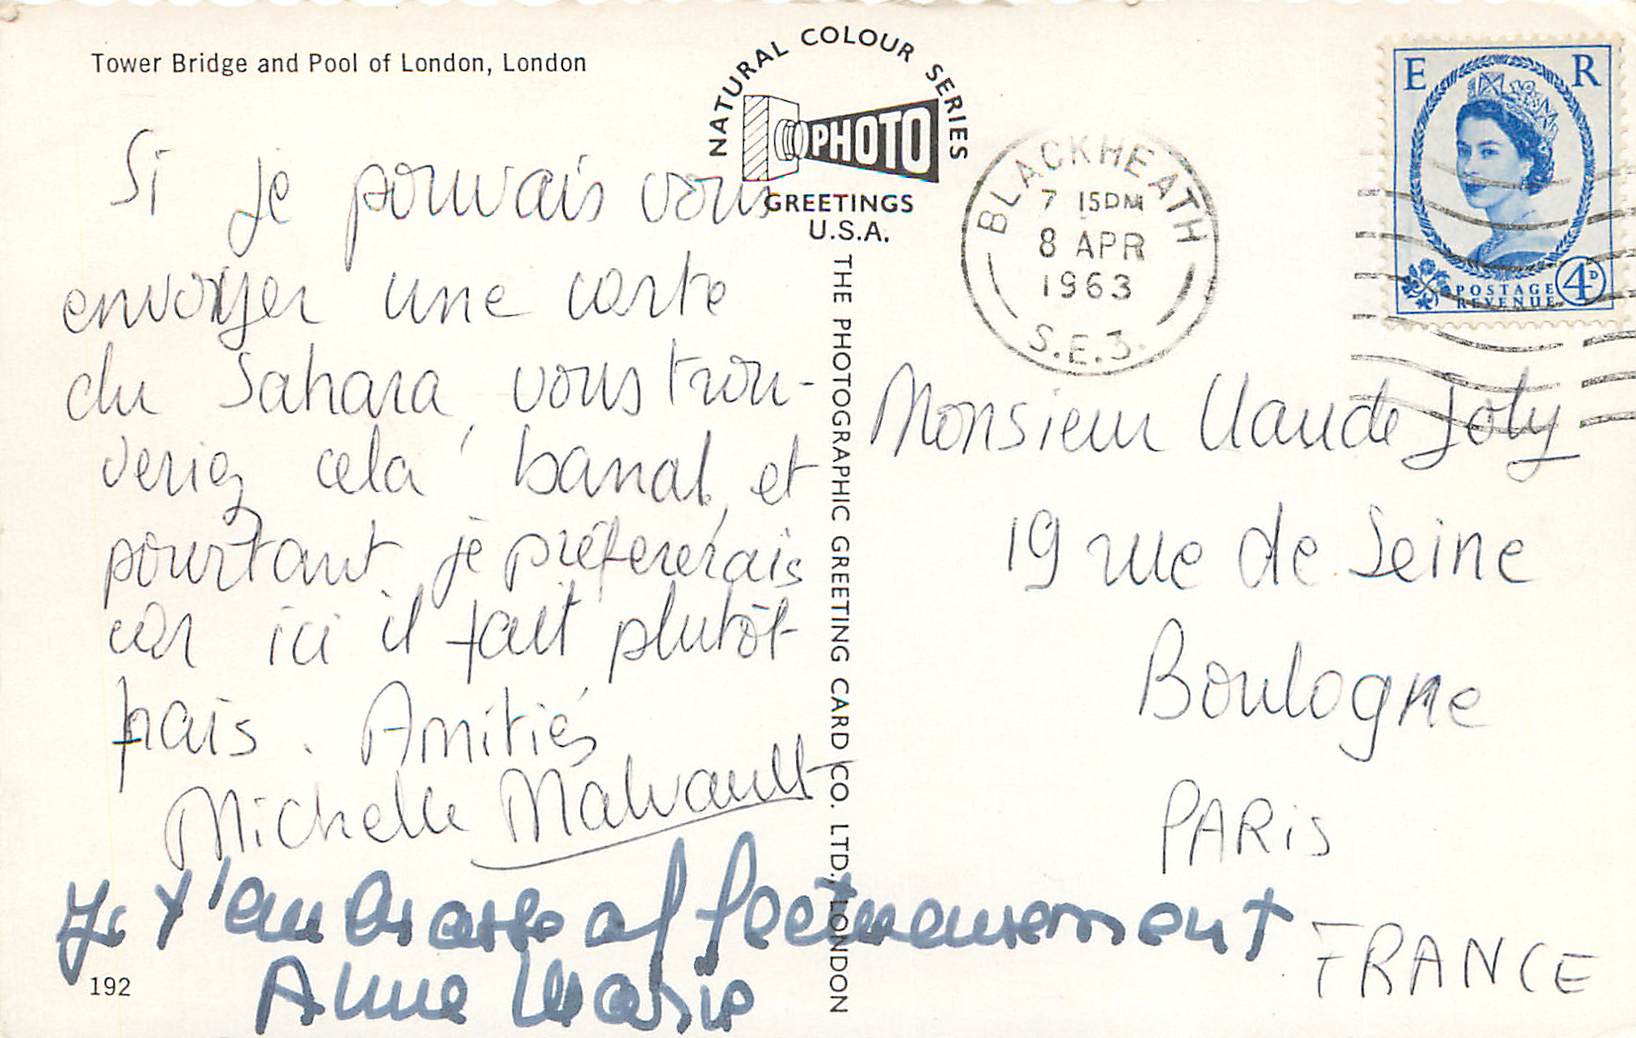 Tower Bridge and Pool of London, London
NATURAL COLOUR SERIES
PHOTO
GREETINGS
U.S.A.
BLACKHEATH
7 15PM
8 APR
1963
S.E.3.
E R
POSTAGE
REVENUE
4D
Si je pouvais vous
envoyer une carte
du Sahara, vous trou-
veriez cela banal, et
pourtant je préfererais
car ici il fait plutôt
frais. Amitiés
Michelle Malvault
Je t'embrasse affectueusement
Anne Marie
192
THE PHOTOGRAPHIC GREETING CARD CO. LTD., LONDON
Monsieur Claude Joly
19 rue de Seine
Boulogne
PARIS
FRANCE